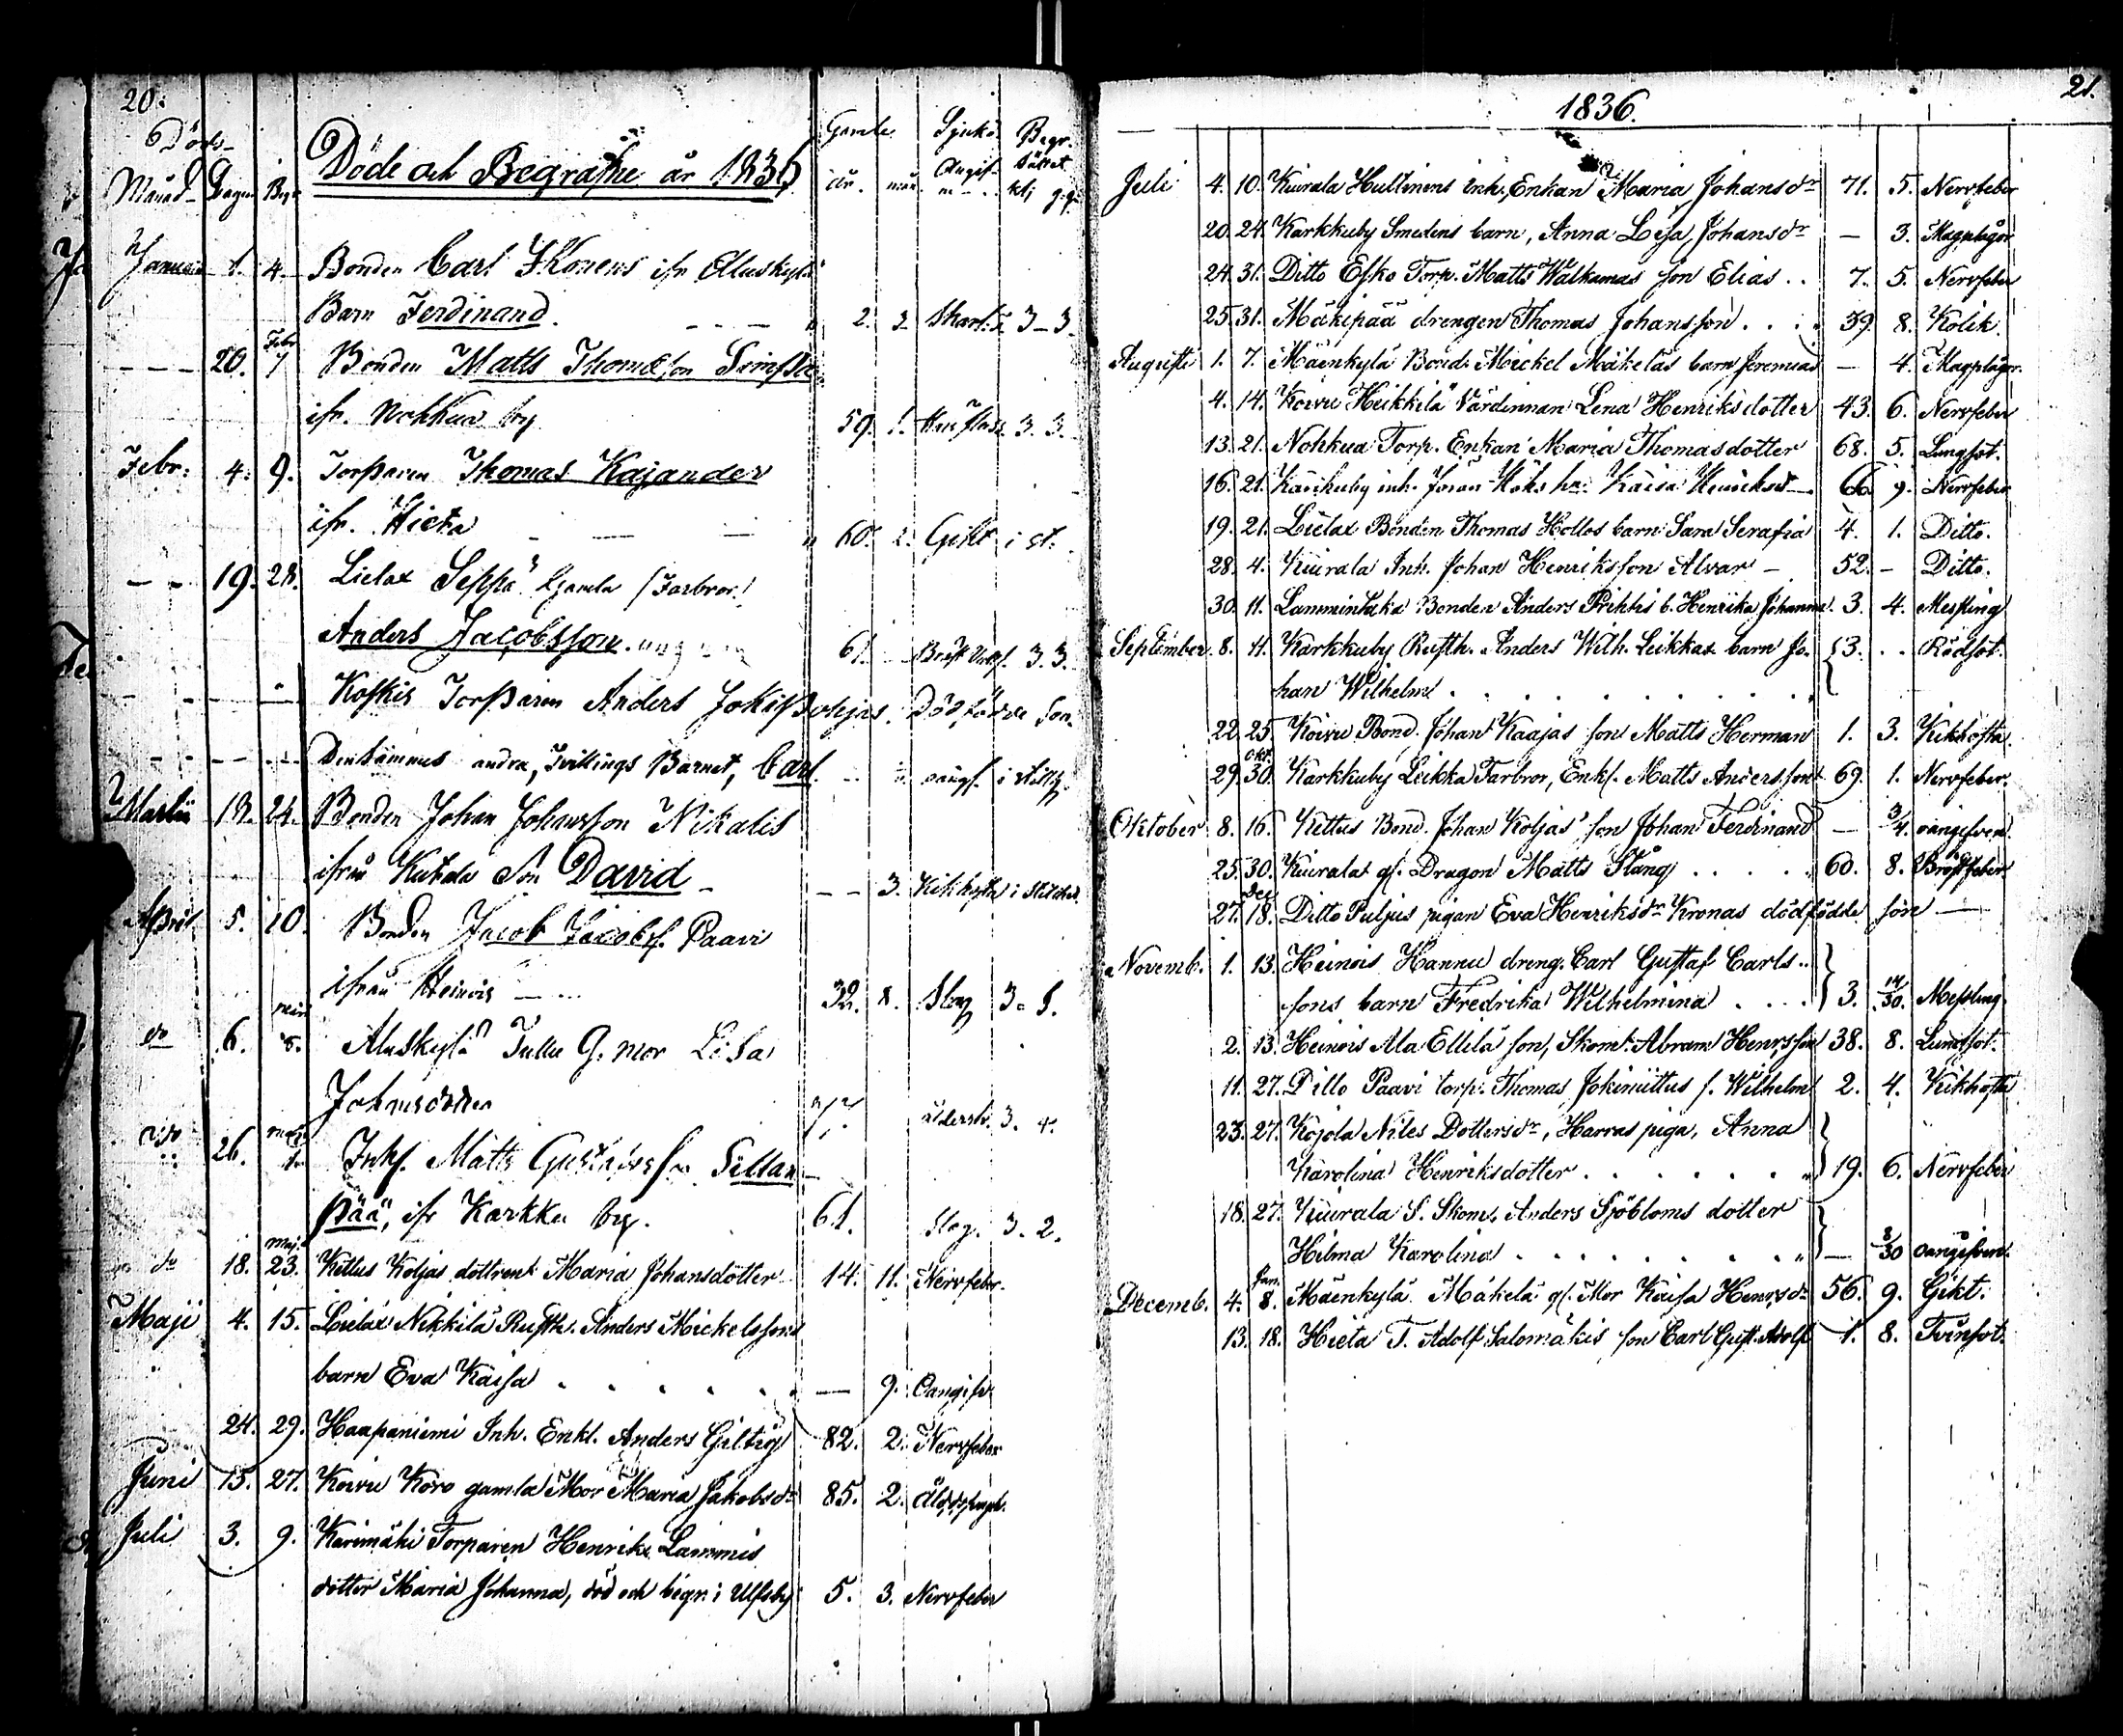 20.
Döds-
Månad Dagen Begr.
Döde och Begrafne år 1836
Gamle Sjukd. Begr.
år. mån. Angif- Sättet
Januari 1. 4. Bonden Carl Ilkonens ifr Aluskylä
Barn Ferdinand. 2. 3. Skarl.f. 3 - 3.
Febr.
20. 7 Bonden Matts Thomasson Simsiö
ifr. Nohkua by 59. 1. 3. 3.
Febr. 4. 9. Torparen Thomas Kajander
ifr. Hieta 60. 2. Gikt i st.
19. 28. Lielax Seppä Gamla (Farbror)
Anders Jacobsson. 61. 3. 3.
Koskis Torparen Anders Jokispohjas Dödfödde Son.
Densammes andra, Tvillings Barnet, Carl. oangf. i stillh.
Martii 13. 24. Bonden Johan Johansson Nikalis
ifrån Kutala Son David 3. Kikhosta i stillhet
April 5. 10. Bonden Jacob Jacobss. Paavi
ifrån Heinois 32. 8. Slag 3. 1.
maji
do 6. 8. Aluskylä Tullu G. mor Lisa
Johansdotter 77. ålderd. 3. 4.
maji
do 26. 1. Inhs. Matts Gustafsson Sillan
pää, ifr Karkku by. 61. Slag. 3. 2.
maji
do 18. 23. Kettus Koljas dottren Maria Johansdotter 14. 11. Nervfeber.
Maji 4. 15. Lielax Nikkilä Rusth. Anders Mickelssons
barn Eva Kaisa . . . . . . — 9. Oangifv.
24. 29. Haapaniemi Inh. Enkl. Anders Giltig 82. 2. Nervfeber
Juni 15. 27. Koivu Köro gamla Mor Maria Jakobsdr 85. 2.
Juli 3. 9. Karimäki Torparen Henrik Lammis
dotter Maria Johanna, död och begr. i Ulfsby 5. 3. Nervfeber
21.
1836.
Juli 4. 10. Kiurala Hultinens inh. Enkan Maria Johansdr 71. 5. Nervfeber
20. 24. Karkkuby Smedens barn, Anna Lisa Johansdr — 3. Magplågor
24. 31. Ditto Esko Torp. Matts Walkamas son Elias . . 7. 5. Nervfeber
25. 31. Mäkipää drengen Thomas Johansson . . . 39. 8. Kolik.
Augusti 1. 7. Mäenkylä Bond. Mickel Mäkeläs barn Jeremias — 4. Magplågor.
4. 14. Koivu Heikkilä Värdinnan Lena Henriksdotter 43. 6. Nervfeber
13. 21. Nohkua Torp. Enkan Maria Thomasdotter 68. 5. Lungsot.
16. 21. Karkuby inh. Jöran Höks hu. Kaisa Henriksdr 66. 9. Nervfeber
19. 21. Lielax Bonden Thomas Hollos barn Sara Serafia 4. 1. Ditto.
28. 4. Kiurala Inh. Johan Henriksson Alvar — 52. - Ditto.
30. 11. Lammintaka Bonden Anders Prihtis b. Henrika Johanna 3. 4. Messling
September 8. 11. Karkkuby Rusth. Anders Wilh. Leikkas barn Jo- 3. . . Rödsot.
han Wilhelm . . . . . . . . .
22. 25. Koivu Bond. Johan Kaajas son Matts Herman 1. 3. Kikhosta.
Okt.
29. 30. Karkkuby Leikka Farbror, Enkl. Matts Andersson 69. 1. Nervfeber.
Oktober 8. 16. Kettus Bond. Johan Koljas son Johan Ferdinand — 3/4. oangifven.
25. 30. Kiurala gf. Dragon Matts Stång . . . . . 60. 8. Bröstfeber
Dec.
27. 18. Ditto Puljus pigan Eva Henriksdr Kronas dödfödde son —
Novemb. 1. 13. Heinois Hannu dreng. Carl Gustaf Carls-
sons barn Fredrika Wilhelmina . . . . 3. 14/30. Messling
2. 13. Heinois Ala Ellilä son, Skom. Abram Henrsson 38. 8. Lungsot.
11. 27. Ditto Paavi torp. Thomas Jokiniittus s. Wilhelm 2. 4. Kikhosta
23. 27. Kojola Niles Dottersdr, Harras piga, Anna
Karolina Henriksdotter . . . . . . 19. 6. Nervfeber
18. 27. Kiurala S. Skom. Anders Sjöbloms dotter
Hilma Karolina . . . . . . . . — 3/30 oangifven.
Jan.
Decemb. 4. 8. Mäenkylä Mäkelä gf. Mor Kaisa Henrsdr 56. 9. Gikt.
13. 18. Hieta T. Adolf Salomäkis son Carl Gust. Adolf 1. 8. Tvinsot.